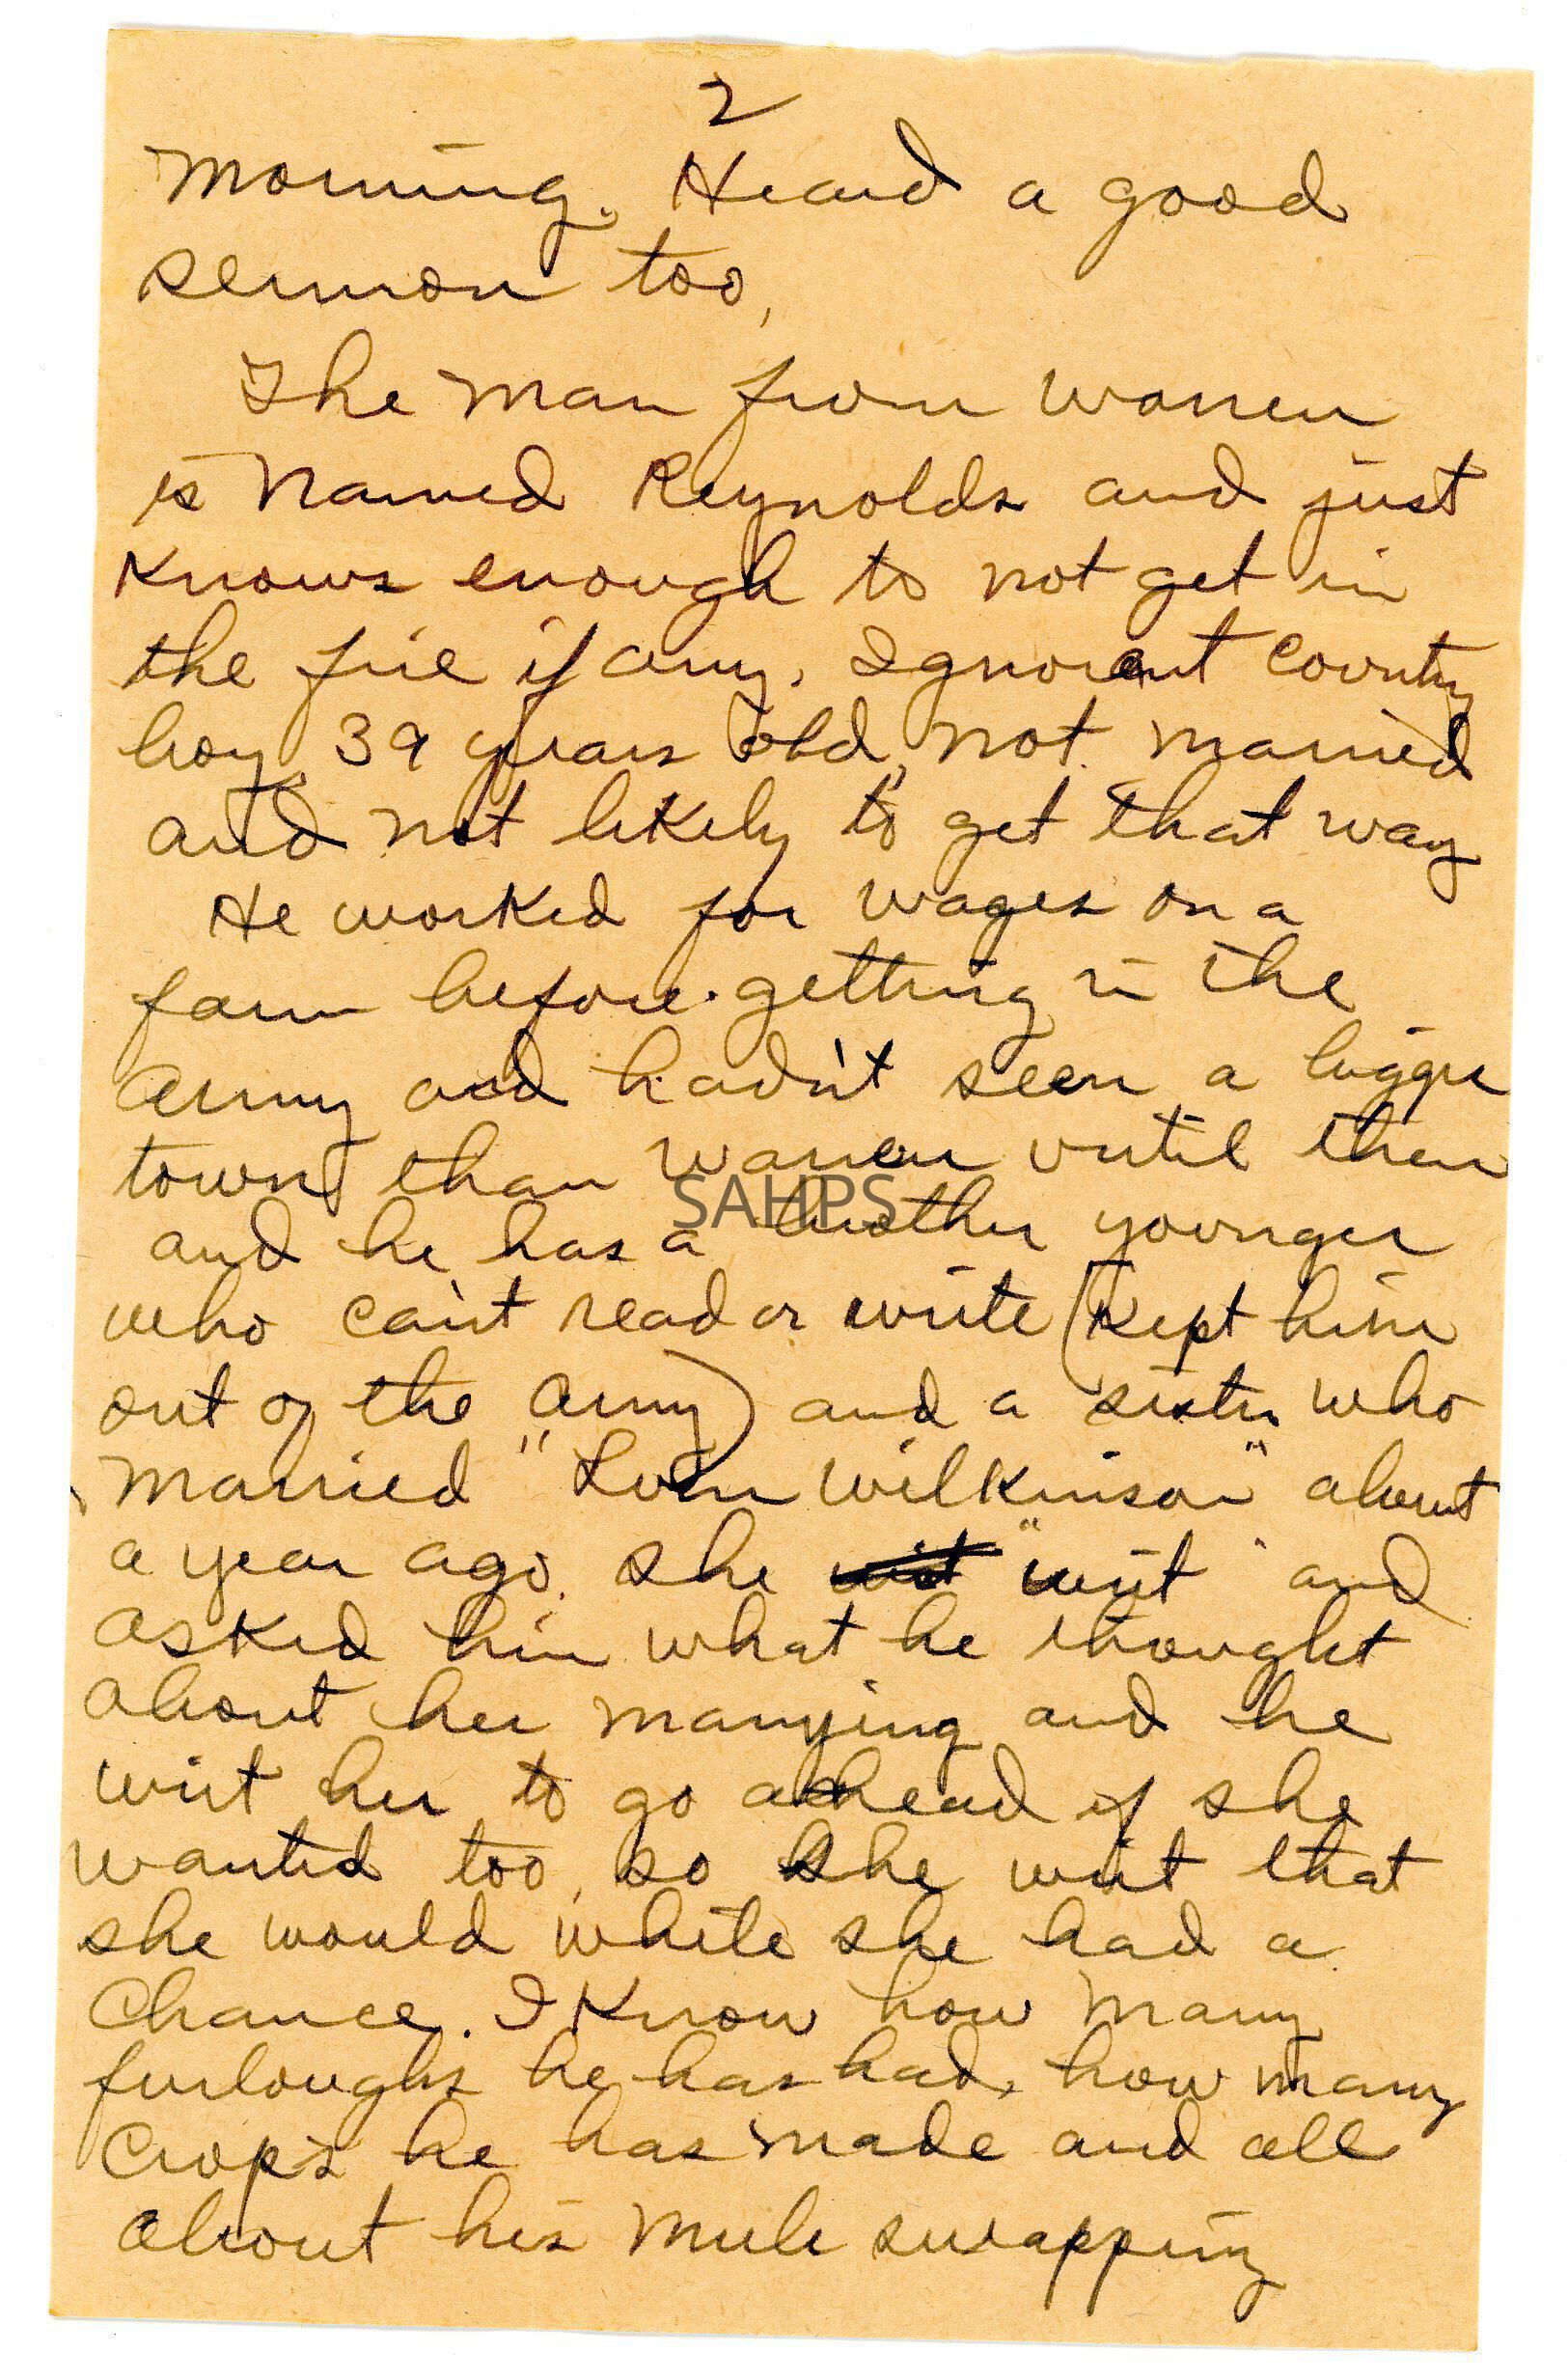 2
morning. Heard a good
sermon too,
The man from Warren
is named Reynolds and just
knows enough to not get in
the fire if any. Ignorant country
boy, 39 years old, not married
and not likely to get that way
He worked for wages on a
farm before getting in the
army and hadn't seen a bigger
town than Warren until then
and he has a brother younger
who can't read or write (kept him
out of the army) and a sister who
married "Loin Wilkinson" about
a year ago. She writ "writ" and
asked him what he thought
about her marrying and he
writ her to go ahead if she
wanted too, so she writ that
she would while she had a
chance. I know how many
furloughs he has had, how many
crops he has made and all
about his mule swapping
SAHPS